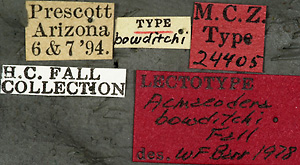 Prescott
Arizona
6 & 7 '94.
TYPE
bowditchi
M.C.Z.
Type
24405
H.C. FALL
COLLECTION
LECTOTYPE
Acmaeodera
bowditchi
Fall
des. WF Barr 1978